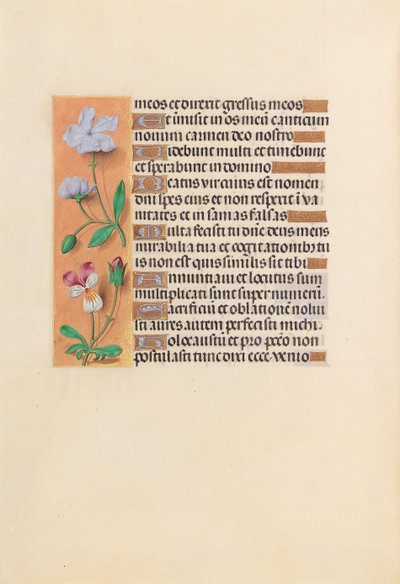 meos et direxit gressus meos
Et inmisit in os meū canticum
novum carmen deo nostro
Videbunt multi et timebunt
et sperabunt in domino
Beatus vir cuius est nomen
dn̄i spes eius et non respexit ī va
nitates et in sanias falsas
Multa fecisti tu dn̄e deus meus
mirabilia tua et cogitationibꝰ tu
is non est quis similis sit tibi
Annuntiaui et locutus sum
multiplicati sunt super numerū
Sacrificiū et oblationē nolui
sti aures autem perfecisti michi
Holocaustū et pro pc̄cō non
postulasti tunc dixi ecce venio